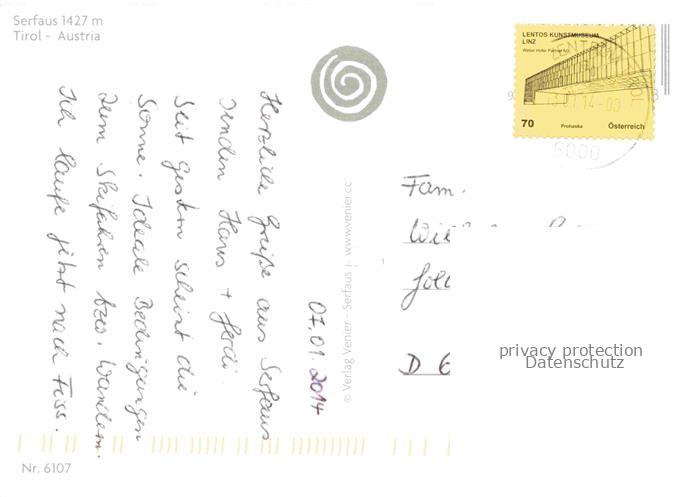 Serfaus 1427 m
Tirol - Austria
07.01.2014
Herzliche Grüße aus Serfaus
senden Hans + Gerdi.
Seit gestern scheint die
Sonne. Ideale Bedingungen
zum Skifahren bzw. Wandern.
Ich laufe jetzt nach Fiss.
© Verlag Venier - Serfaus | www.venier.cc
LENTOS KUNSTMUSEUM
LINZ
Weber Hofer Partner AG
70
Prohaska
Österreich
14-09
6000
Fam.
D 6
privacy protection
Datenschutz
Nr. 6107